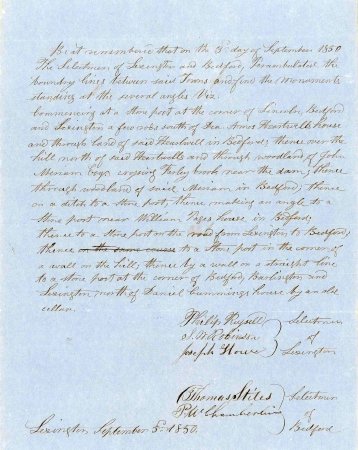 Be it remembered that on the 5th day of September 1850
The Selectmen of Lexington and Bedford, Parambulated the
boundary lines between said Towns and find the Monuments
standing at the several angles Viz.
Commencing at a stone post at the corner of Lincoln, Bedford
and Lexington a few rods south of Dea. Amos Heartwells house
and through land of said Heartwell in Bedford; thence over the
hill north of said Heartwells and through woodland of John
Meriam crossing Farley brook near the dam; thence
through woodland of said Meriam in Bedford; thence
on a ditch to a stone post, thence making an angle to a
stone post near William Pages house in Bedford;
thence to a stone post on the road from Lexington to Bedford;
thence on the same course to a stone post in the corner of
a wall on the hill; thence by a wall on a straight line
to a stone post at the corner of Bedford, Burlington and
Lexington, north of Daniel Cummings house by an old
cellar.
Philip Russell
J. W. Robinson
Joseph Howe
Selectmen
of
Lexington
Thomas Stiles
P. W. Chamberlin
Selectmen
of
Bedford
Lexington September 5th 1850.